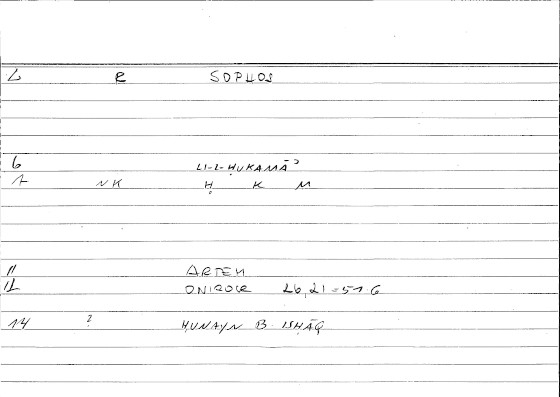 2 R SOPHOS
6 LI-L-ḤUKAMĀʾ
7 NK Ḥ K M
11 ARTEM
12 ONIROCR 26,21 = 51.6
14 ? ḤUNAYN B. ISḤĀQ